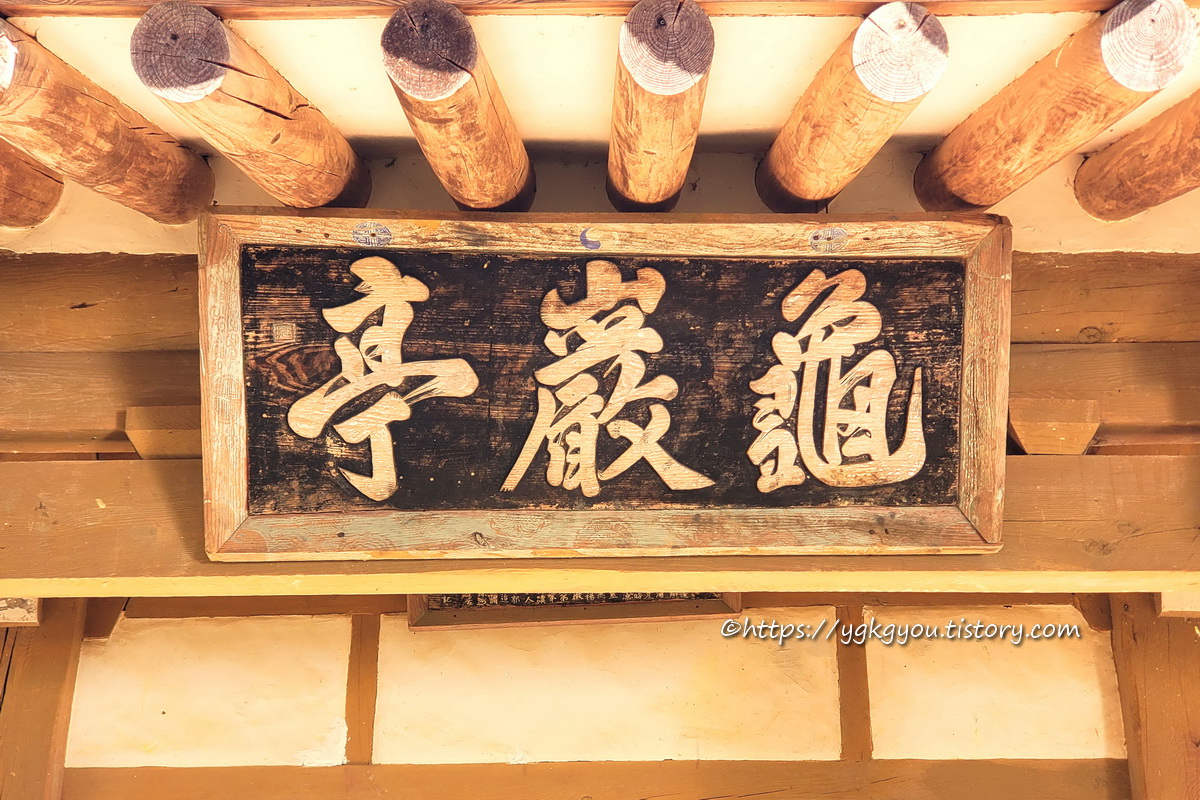 龜巖亭
©https://ygkgyou.tistory.com